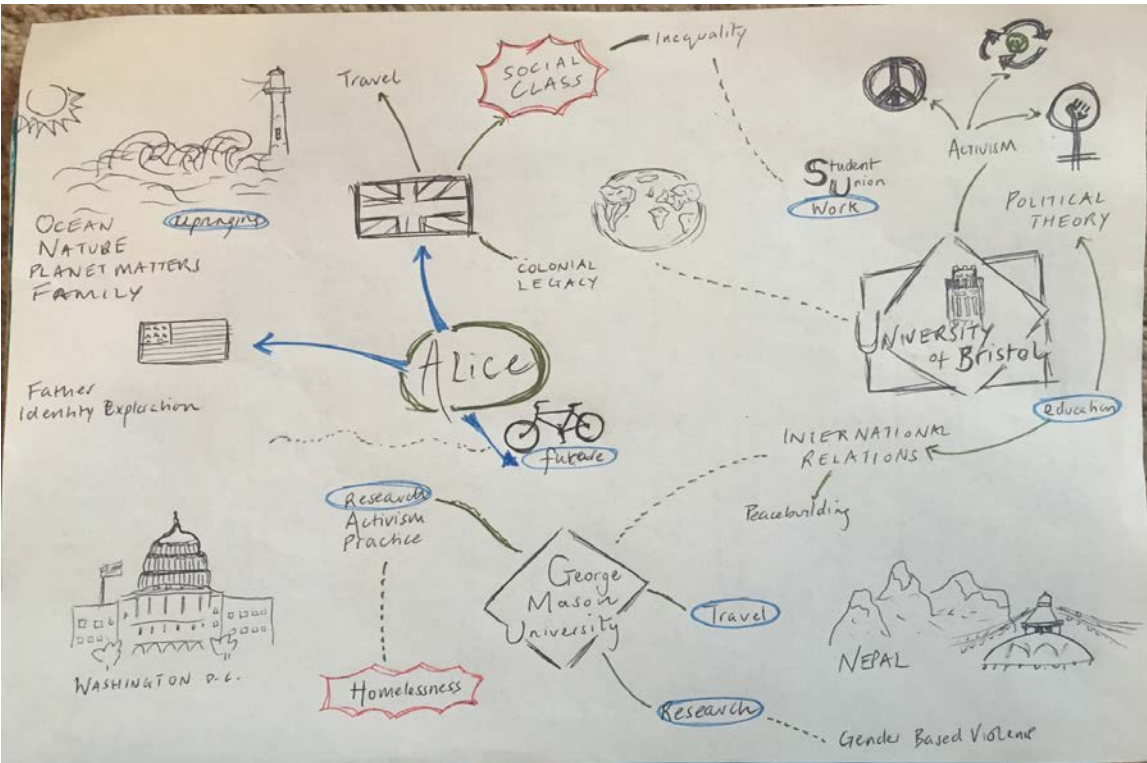 Travel
SOCIAL
CLASS
Inequality
ACTIVISM
Student
Union
Work
POLITICAL
THEORY
upbringing
OCEAN
NATURE
PLANET MATTERS
FAMILY
COLONIAL
LEGACY
UNIVERSITY
of Bristol
Alice
Father
Identity Exploration
future
education
INTERNATIONAL
RELATIONS
Peacebuilding
Research
Activism
Practice
George
Mason
University
Travel
NEPAL
WASHINGTON D.C.
Homelessness
Research
Gender Based Violence